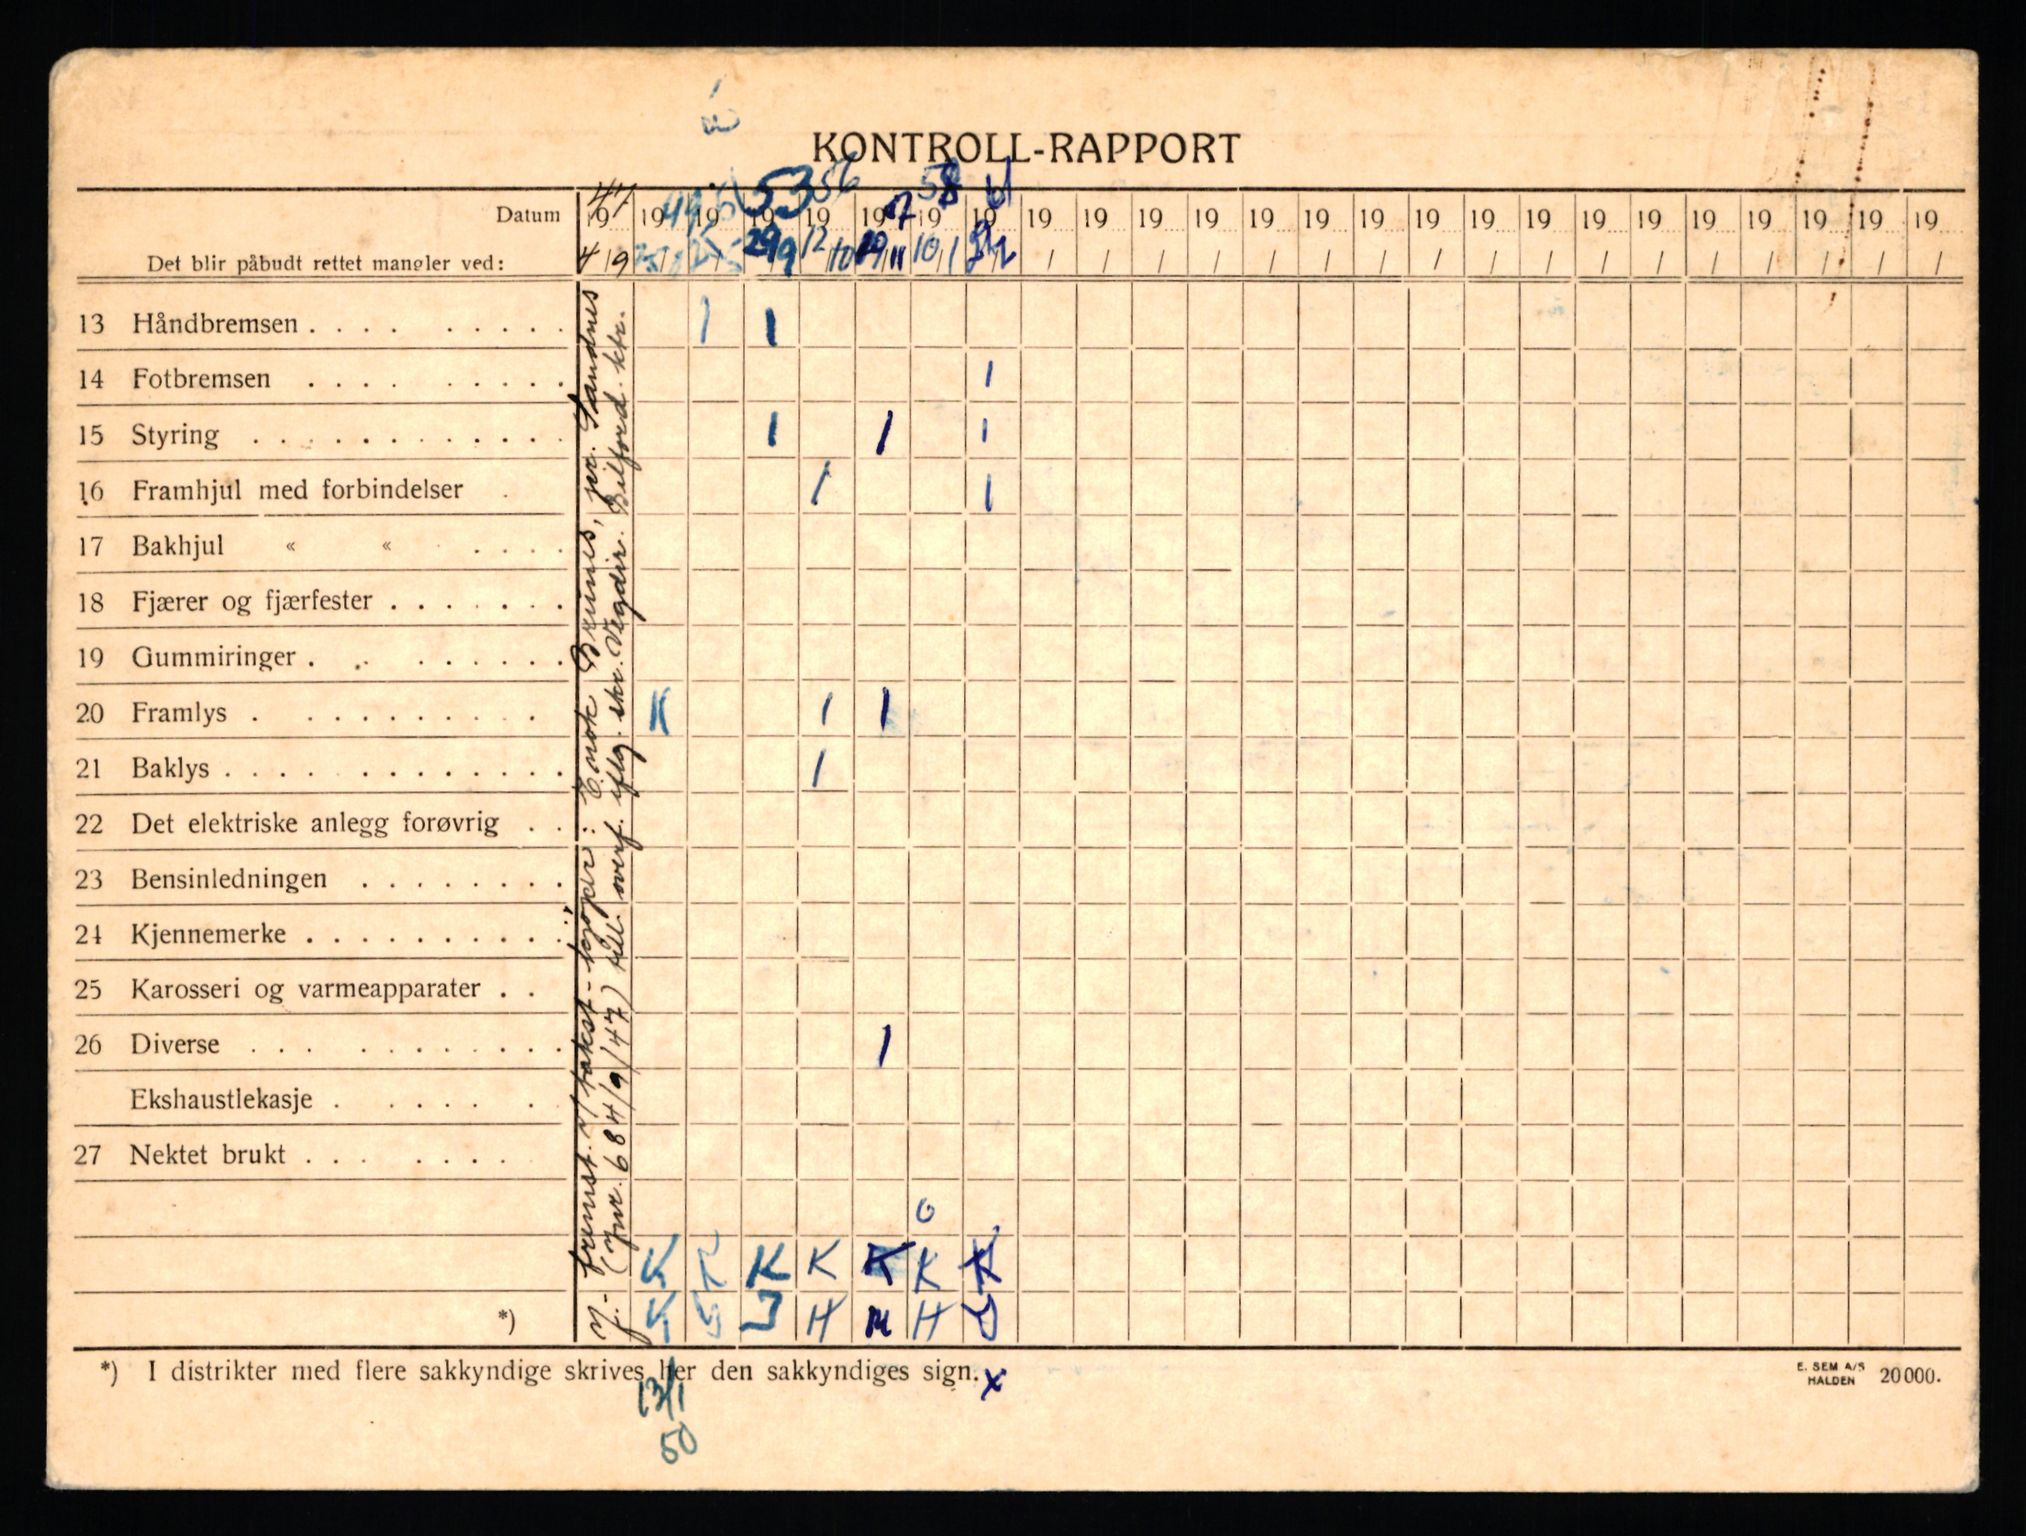 KONTROLL-RAPPORT
Datum 19 47 19 49 19 19 53 19 56 19 7 19 58 19 19 19 19 19 19 19 19 19 19 19 19 19 19 19 19 19
Det blir påbudt rettet mangler ved: 4/9 29/9 12/10 10/1 / / / / / / / / / / / / / / / / /
13 Håndbremsen . . . . . . . . . 1 1
14 Fotbremsen . . . . . . . . . 1
15 Styring . . . . . . . . . . . . 1 1 1
16 Framhjul med forbindelser . 1 1
17 Bakhjul « « . . . .
18 Fjærer og fjærfester . . . . . . .
19 Gummiringer . . . . . . . .
20 Framlys . . . . . . . . . K 1 1
21 Baklys . . . . . . . . . . . . 1
22 Det elektriske anlegg forøvrig . .
23 Bensinledningen . . . . . . . .
24 Kjennemerke . . . . . . . . . .
25 Karosseri og varmeapparater . .
26 Diverse . . . . . . . . . . . 1
Ekshaustlekasje . . . . . .
27 Nektet brukt . . . . . . .
fremst. v/ takst - kjøper: Enok Brunes, pr. Sandnes
(Jnr. 684/9/47) till. overf. iflg. skr. Vegdir. Bilford. ktr.
K K K K K K K
*) K J H M H
*) I distrikter med flere sakkyndige skrives her den sakkyndiges sign. x
13/1
50
E. SEM A/S
HALDEN 20000.